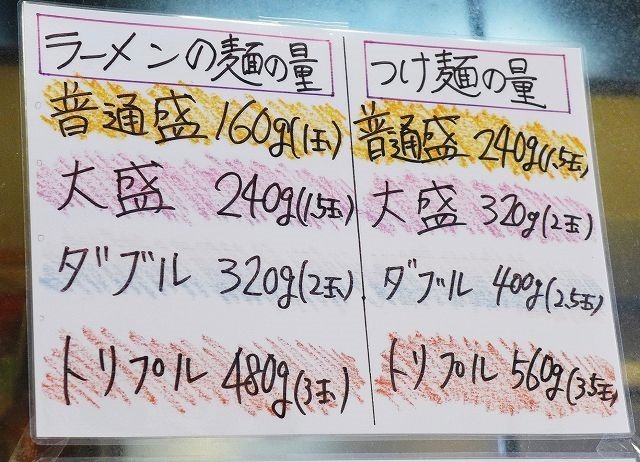 ラーメンの麺の量
普通盛 160g(1玉)
大盛 240g(1.5玉)
ダブル 320g(2玉)
トリプル 480g(3玉)
つけ麺の量
普通盛 240g(1.5玉)
大盛 320g(2玉)
ダブル 400g(2.5玉)
トリプル 560g(3.5玉)